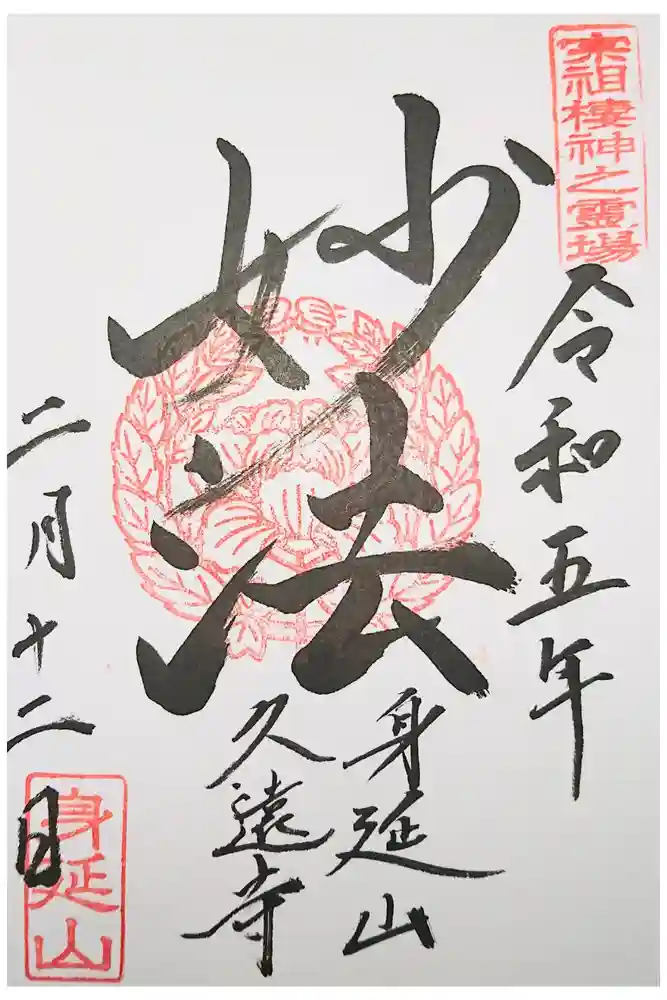 宗祖棲神之霊場
令和五年
妙法
身延山
久遠寺
二月十二日
身延山